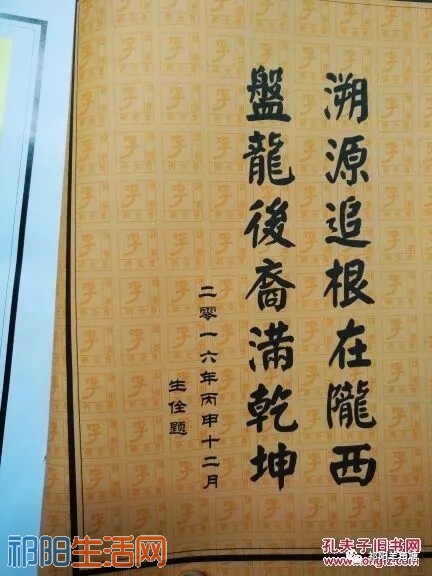 溯源追根在隴西
盤龍後裔滿乾坤
二零一六年丙申十二月
生佺题
祁阳生活网
孔夫子旧书网